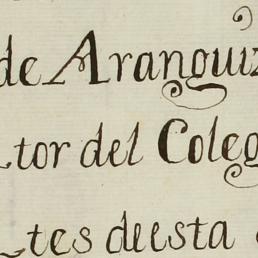 de Aranguiz
tor del Coleg
tes deesta